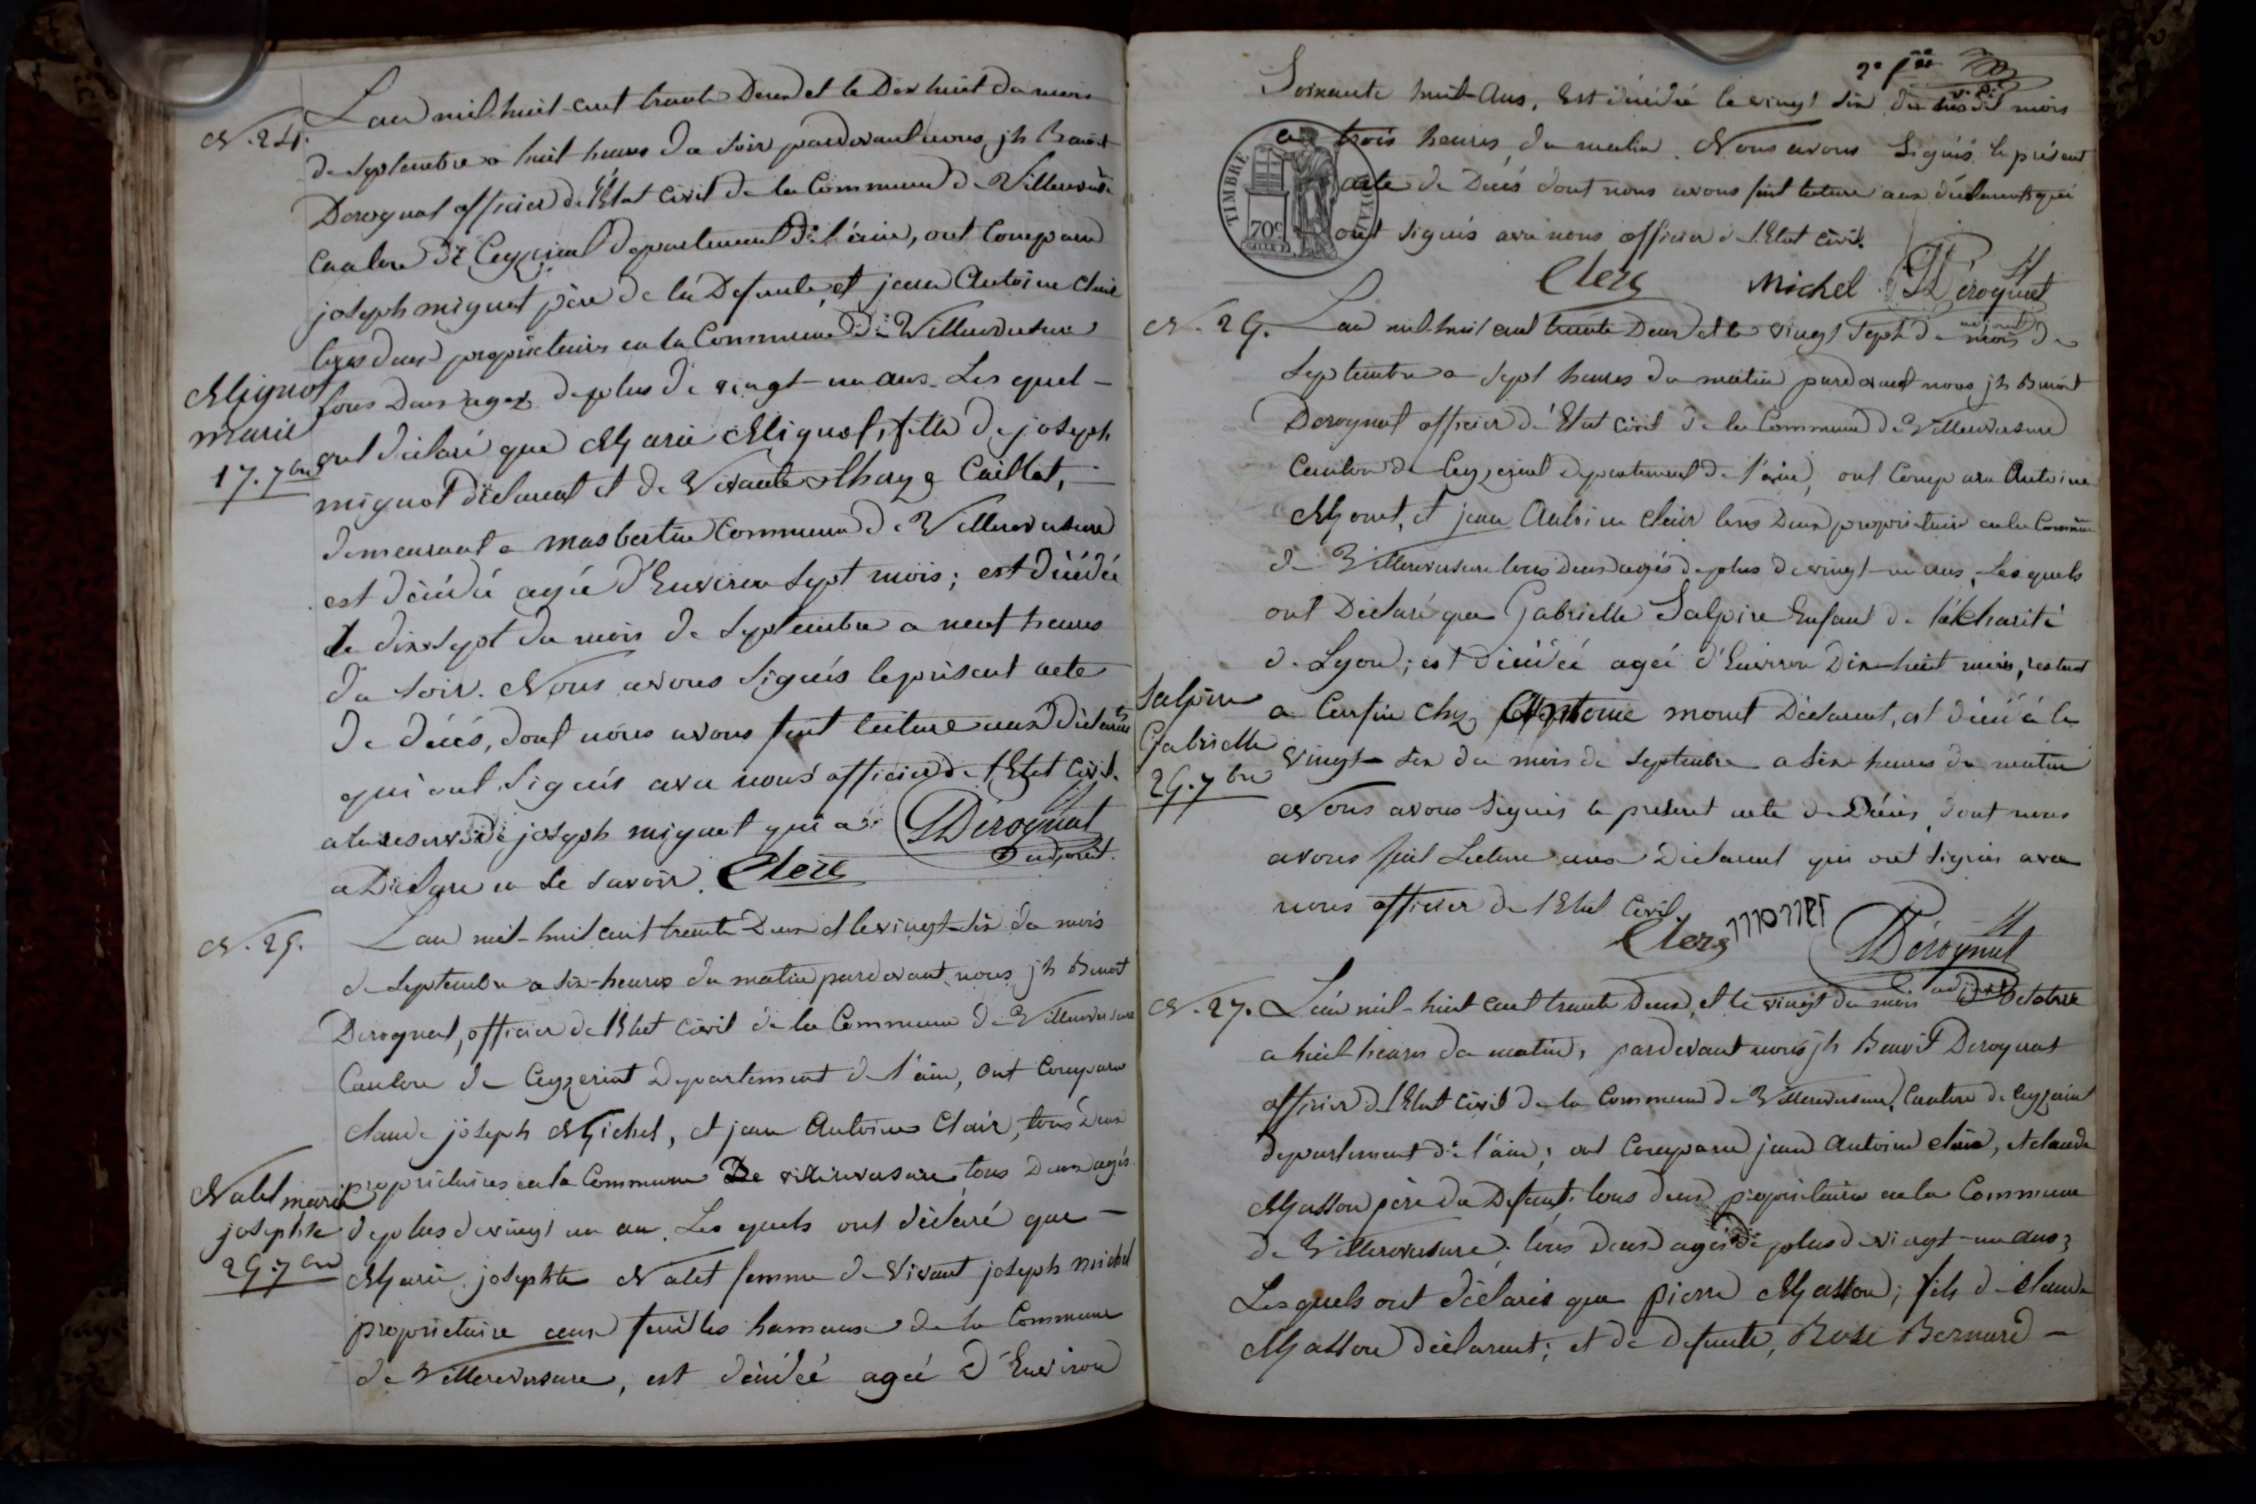 N. 24.
L'an mil-huit-cent trente Deux et le Dix huit du mois
de Septembre a huit heures du soir pardevant nous jh Benoit
Derognat officier de l'Etat civil de la Commune de Villereversure
Canton de Ceyzeriat departement de l'ain, ont Comparu
joseph mignot père de la Defunte, et jean Antoine Clair
tous deux propriétaires en la Commune de Villereversure
Mignot
marie
17. 7bre
tous Deux agés de plus de vingt-un ans. Les quel-
ont déclaré que Marie Mignot, fille de joseph
mignot déclarant et de Vivante Caillat,
demeurant a masbertin Commune de Villereversure
est décédé agée d'Environ Sept mois; est décédée
le dix sept du mois de Septembre a neuf heures
du soir. Nous avons Signés le présent acte
de décés, dont nous avons fait lecture aux déclarants
qui ont Signés avec nous officier de l'Etat Civil.
a la reserve de joseph mignot qui a
Derognat
adjoint.
a Déclaré ne le savoir. Clerc
N. 25.
L'an mil-huit cent trente Deux et le vingt-six du mois
de Septembre a six-heures du matin pardevant nous jh Benoit
Derognat, officier de l'Etat Civil de la Commune de Villereversure
Canton de Ceyzeriat Departement de l'ain, ont Comparu
claude joseph Michel, et jean Antoine Clair, tous Deux
propriétaires en la Commune De villereversure tous Deux agés
Nalet marie
josephte
26. 7bre
de plus de vingt un an. Les quels ont déclaré que -
Marie josephte Nalet femme de Vivant joseph michel
proprietaire aux feuilles hameaux de la Commune
de Villereversure, est décédeé ageé D'Environ
Soixante huit Ans, Est décédeé le vingt six du mois
a trois heures, du matin. Nous avons Signés le présent
acte de Décés dont nous avons fait lecture aux déclarants qui
ont signés avec nous officier de l'Etat Civil.
TIMBRE ROYAL
70c
Clerc Michel Derognat
N. 26.
L'an mil huit cent trente Deux et le vingt Sept du mois de
Septembre a Sept heures du matin pardevant nous jh Benoit
Derognat officier de l'Etat Civil de la Commune de Villereversure
Canton de Ceyzeriat departement de l'ain, ont Comparu Antoine
Monet, et jean Antoine Clair tous Deux propriétaire en la Commune
de Villereversure tous Deux agés de plus de vingt-un ans, Les quels
ont Déclaré que Gabrielle Salpire Enfant de la Charité
de Lyon; est décédeé ageé d'Environ Dix-huit mois, restant
Salpire
Gabrielle
26. 7bre
a chez Antoine monet Déclarant, est décédé le
vingt-six du mois de Septembre a six heures du matin
Nous avons Signés le présent acte de Décés, dont nous
avons fait Lecture aux Déclarant qui ont Signés avec
nous officier de l'Etat Civil.
Clerc monet Derognat
adjoint
N. 27.
L'an mil-huit cent trente Deux, et le vingt du mois d'octobre
a huit heures du matin, pardevant nous jh Benoit Derognat
officier de l'Etat Civil de la Commune de Villereversure, Canton de Ceyzeriat
departement de l'ain; ont Comparu jean Antoine Clair, et claude
Masson père du Defunt tous deux propriétaires en la Commune
de Villereversure. tous deux agés de plus de vingt-un ans;
Lesquels ont déclarés que pierre Masson; fils de Claude
Masson déclarant; et de defunte, Rose Bernard -